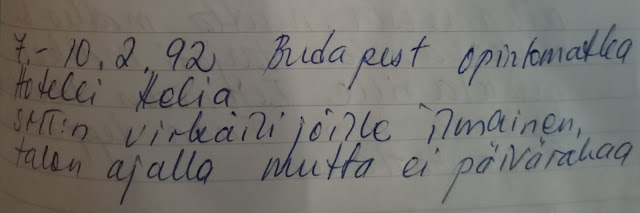 7.-10.2.92 Budapest opintomatka
Hotelli Helia
SMT:n virkailijoille ilmainen,
talon ajalla mutta ei päivärahaa